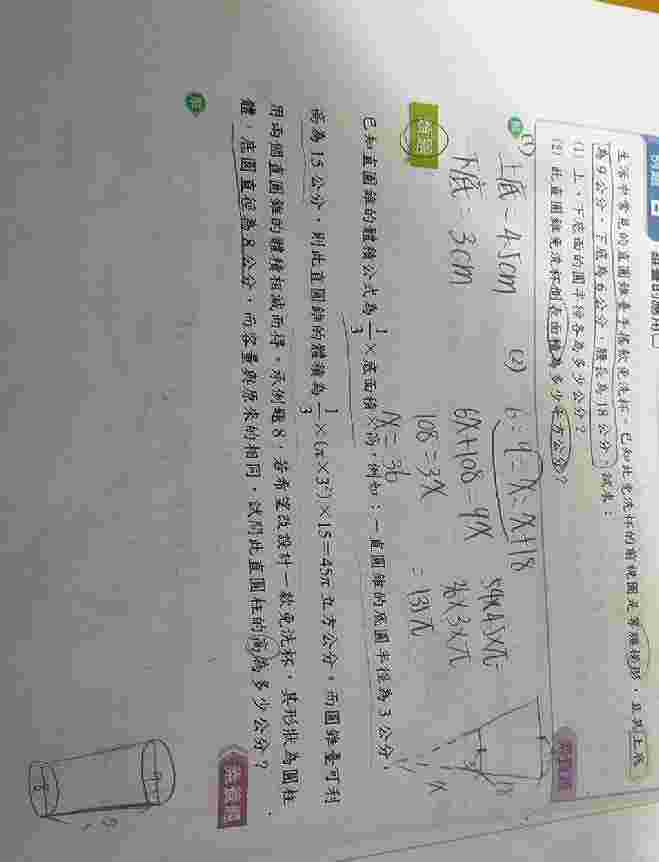 例題
生活中常見的直圓錐臺手搖飲免洗杯。已知此免洗杯的前視圖是等腰梯形,且測上底
為9公分,下底為6公分,腰長為18公分,試求:
(1) 上、下底面的圓半徑各為多少公分?
(2) 此直圓錐免洗杯的表面積為多少平方公分?
解
(1)
上底=4.5cm
下底=3cm
(2) 6:9=x:x+18
6x+108=9x
108=3x
x=36
54×4.5×π-
36×3×π
=135π
已知直圓錐的體積公式為1/3×底面積×高,例如:一直圓錐的底圓半徑為3公分,
高為15公分,則此直圓錐的體積為1/3×(π×3²)×15=45π立方公分。而圓錐臺可利
用兩個直圓錐的體積相減而得。承例題8,若希望改設計一款免洗杯,其形狀為圓柱
體,底圓直徑為8公分,而容量與原來的相同,試問此直圓柱的高為多少公分?
素養題
解